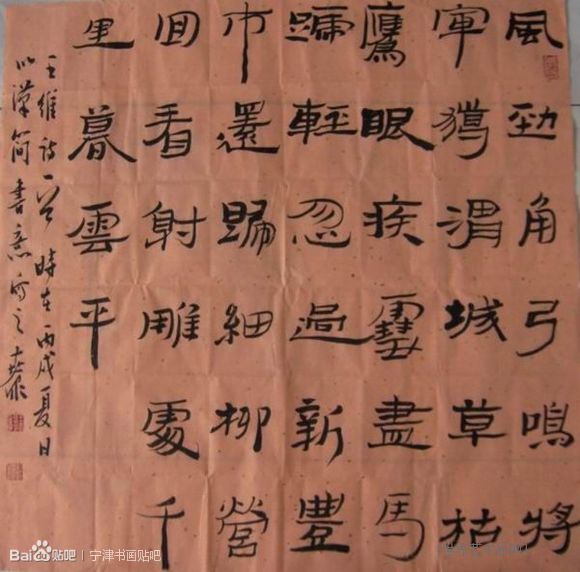 風勁角弓鳴將
軍獵渭城草枯
鷹眼疾雪盡馬
蹄輕忽過新豐
市還歸細柳營
回看射雕處千
里暮雲平
王維詩一首時在丙戌夏日
以漢簡書意為之
Bai贴吧|宁津书画贴吧